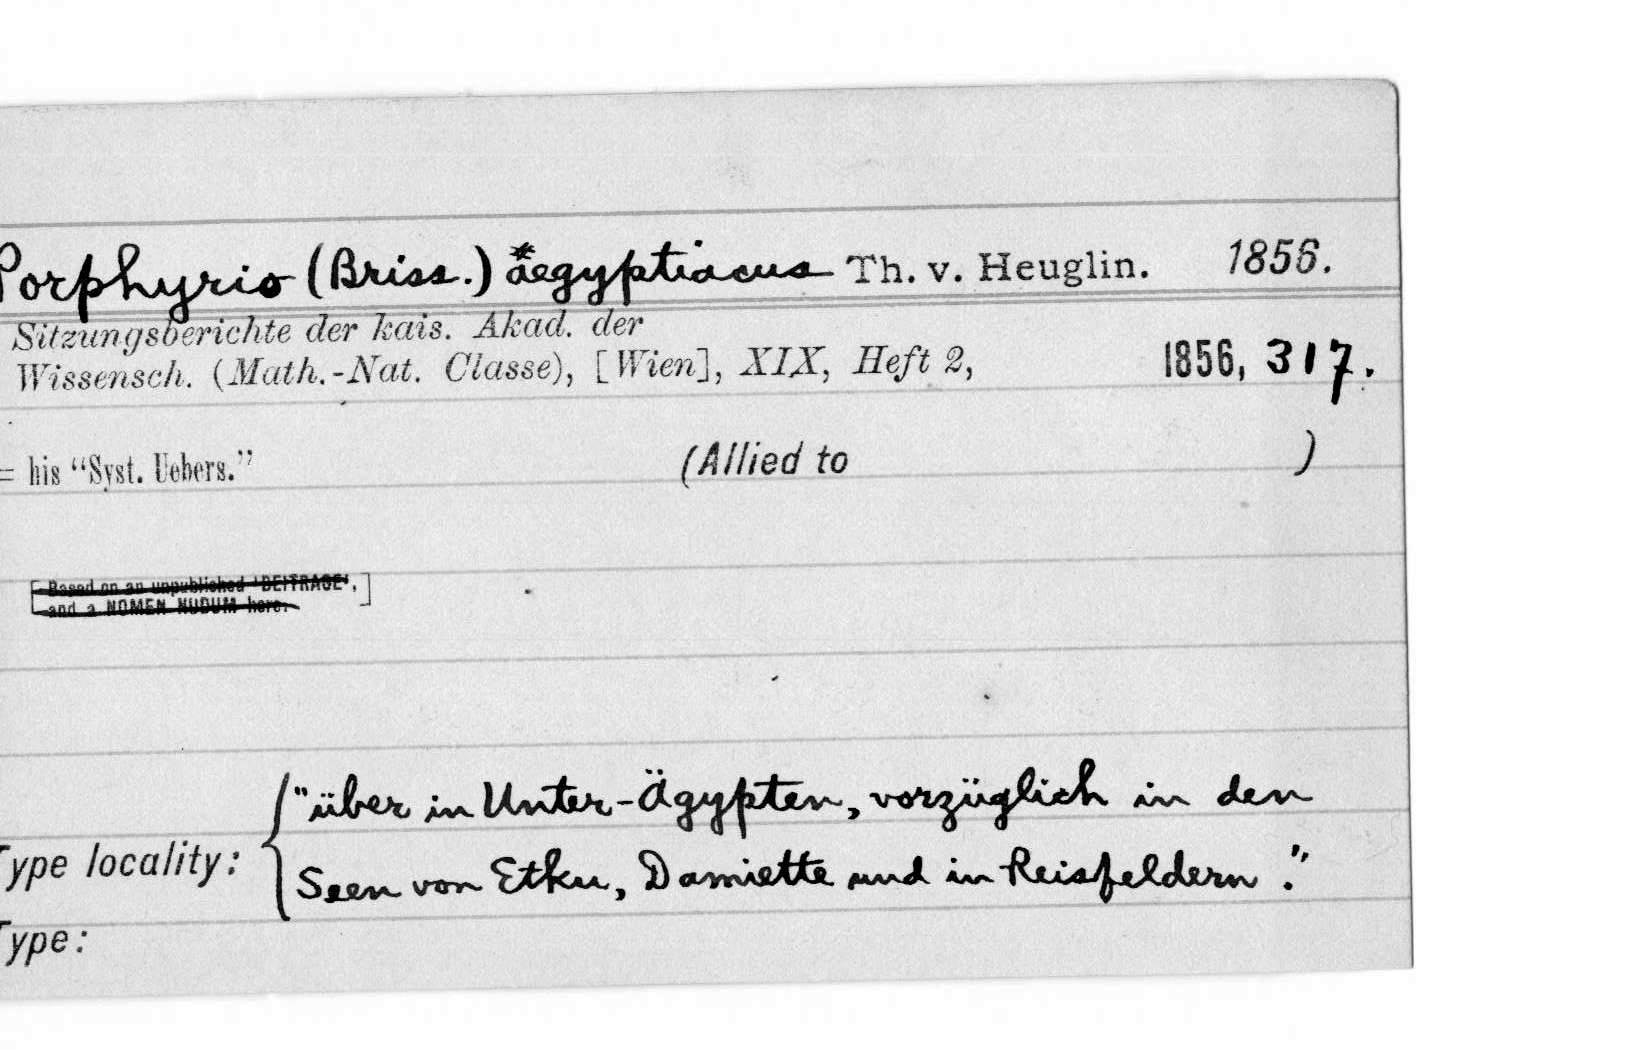 Porphyrio (Briss.) *aegyptiacus Th. v. Heuglin. 1856.
Sitzungsberichte der kais. Akad. der
Wissensch. (Math.-Nat. Classe), [Wien], XIX, Heft 2, 1856, 317.
= his "Syst. Uebers." (Allied to )
[Based on an unpublished 'BEITRAGE',
and a NOMEN NUDUM here.]
"über in Unter-Ägypten, vorzüglich in den
Type locality:
Seen von Etku, Damiette und in Reisfeldern."
Type: